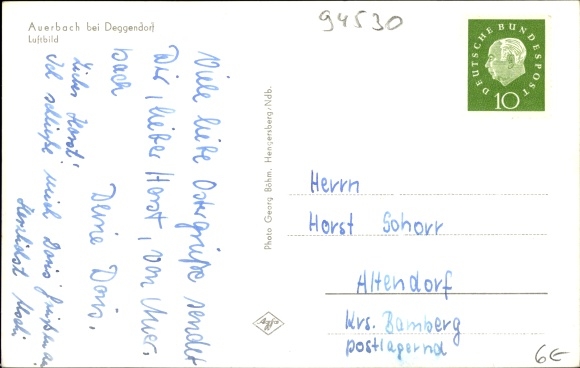 Auerbach bei Deggendorf
Luftbild
94530
DEUTSCHE BUNDESPOST
10
Viele liebe Ostergrüße sendet
Dir, lieber Horst, von Auer-
bach
Deine Doris.
Lieber Horst!
Ich schließe mich Doris Grüßen an
Herzlichst
Photo Georg Böhm, Hengersberg/Ndb.
Agfa
Herrn
Horst Schorr
Altendorf
Krs. Bamberg
postlagernd
6€